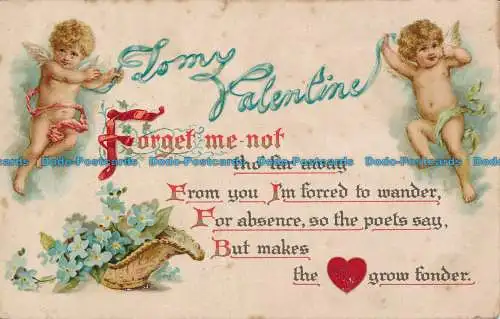 To my
Valentine
Forget-me-not
tho' far away
From you I'm forced to wander,
For absence, so the poets say,
But makes
the grow fonder.
Dodo-Postcards Dodo-Postcards Dodo-Postcards Dodo-Postcards